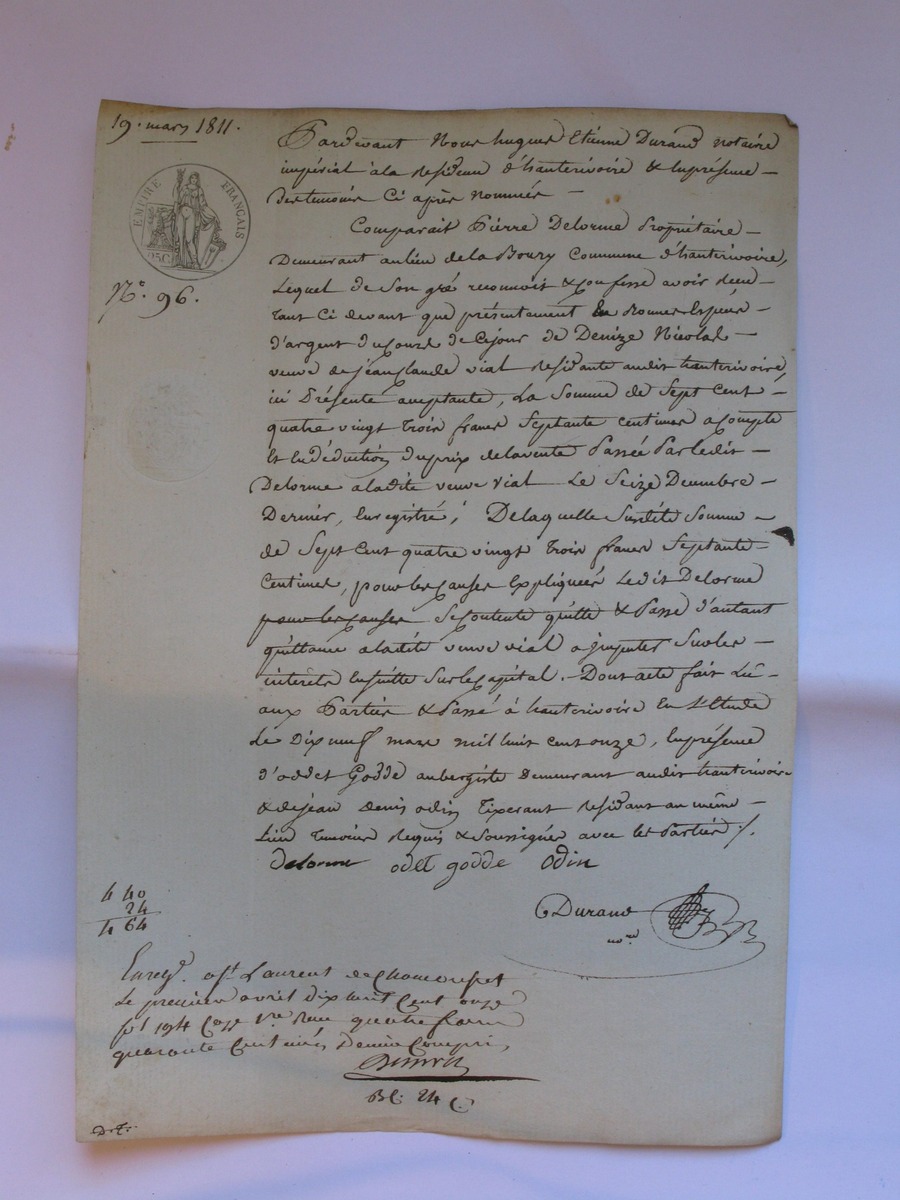 19. mars 1811.
EMPIRE FRANÇAIS
25C.
N.° 96.
Pardevant Nous hugues Etienne Durand notaire
impérial à la Residence d'hauterivoire & En présence
des temoins Ci après nommés
Comparait Pierre Delorme Propriétaire
Demeurant au lieu de la Boury Commune d'hauterivoire,
Lequel de Son gré reconnoit & confesse avoir reçu
tant Ci devant que présentament En Bonnes Espèces
d'argent du cours de Ce jour de Denize Nicolas
veuve de jean Claude vial Residante audit hauterivoire,
ici Présente acceptante, La Somme de Sept Cent
quatre vingt trois francs Septante centimes acompte
Et En déduction du prix de la vente Passée Par ledit
Delorme a ladite veuve vial Le Seize Decembre
Dernier, Enregistré; De laquelle Susdite Somme
de Sept Cent quatre vingt trois francs Septante
Centimes, pour les causes Expliquées Ledit Delorme
pour les causes Se Contente quitte & Passe d'autant
quittance a ladite veuve vial a jmputer Sur les
intérêts Ensuitte Sur le Capital. Dont acte fait Lu
aux Parties & Passé à hauterivoire En l'Etude
Le Dix neuf mars mil huit cent onze, En présence
d'oddet Godde aubergiste Demeurant audit hauterivoire
& de jean Denis odin Tixerant Residant au même
Lieu temoins Requis & Soussignés avec les Parties ./.
Delorme odet godde Odin
Durand
no.re
4 40
24
4 64
Enreg.é a St. Laurent de Chamousset
Le premier avril dix huit Cent onze
fol 194 Case 1.re Reçu quatre francs
quarante Centimes Dixième Compris,
BC. 24 C
D.T.